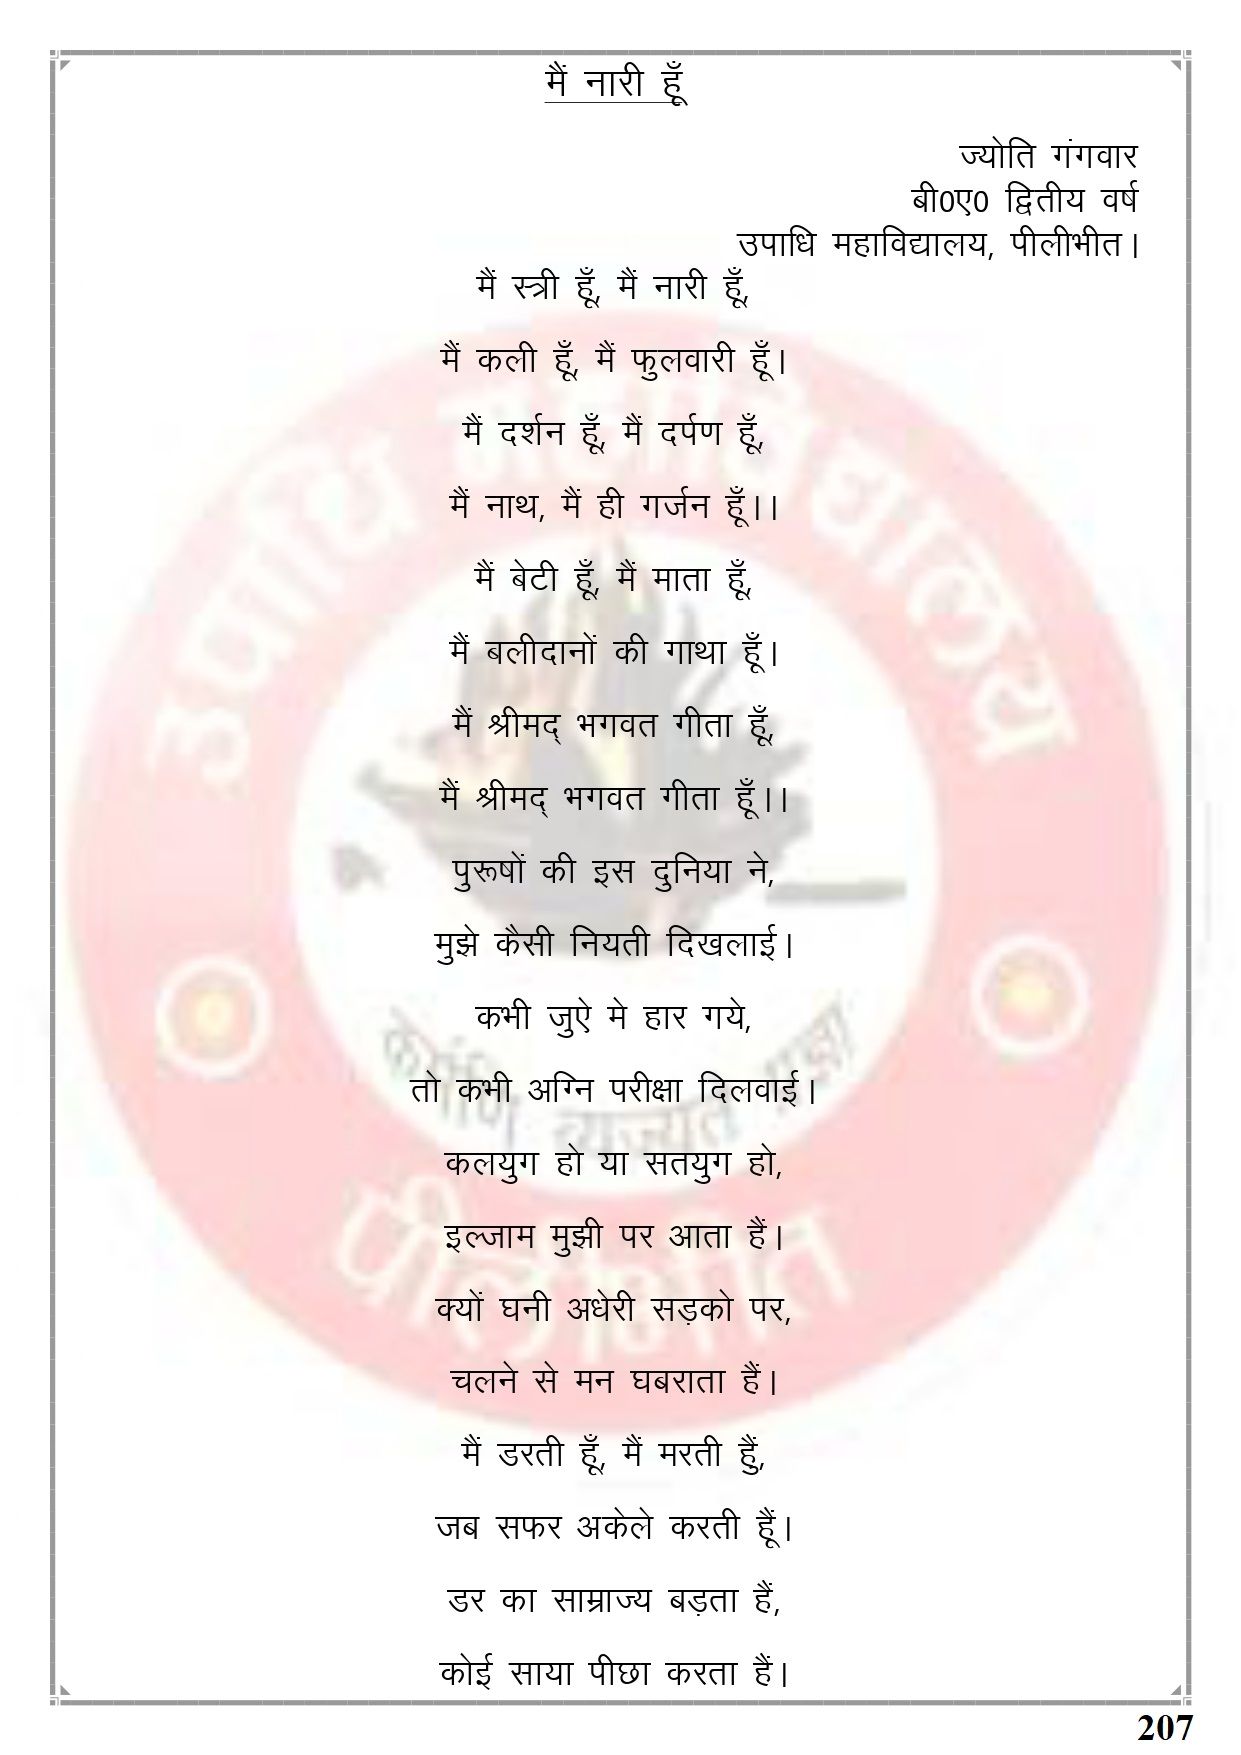 मैं नारी हूँ
ज्योति गंगवार
बी0ए0 द्वितीय वर्ष
उपाधि महाविद्यालय, पीलीभीत।
मैं स्त्री हूँ, मैं नारी हूँ,
मैं कली हूँ, मैं फुलवारी हूँ।
मैं दर्शन हूँ, मैं दर्पण हूँ,
मैं नाथ, मैं ही गर्जन हूँ।।
मैं बेटी हूँ, मैं माता हूँ,
मैं बलीदानों की गाथा हूँ।
मैं श्रीमद् भगवत गीता हूँ,
मैं श्रीमद् भगवत गीता हूँ।।
पुरूषों की इस दुनिया ने,
मुझे कैसी नियती दिखलाई।
कभी जुऐ मे हार गये,
तो कभी अग्नि परीक्षा दिलवाई।
कलयुग हो या सतयुग हो,
इल्जाम मुझी पर आता हैं।
क्यों घनी अधेरी सड़को पर,
चलने से मन घबराता हैं।
मैं डरती हूँ, मैं मरती हुँ,
जब सफर अकेले करती हूँ।
डर का साम्राज्य बड़ता हैं,
कोई साया पीछा करता हैं।
207
उपाधि महाविद्यालय
पीलीभीत